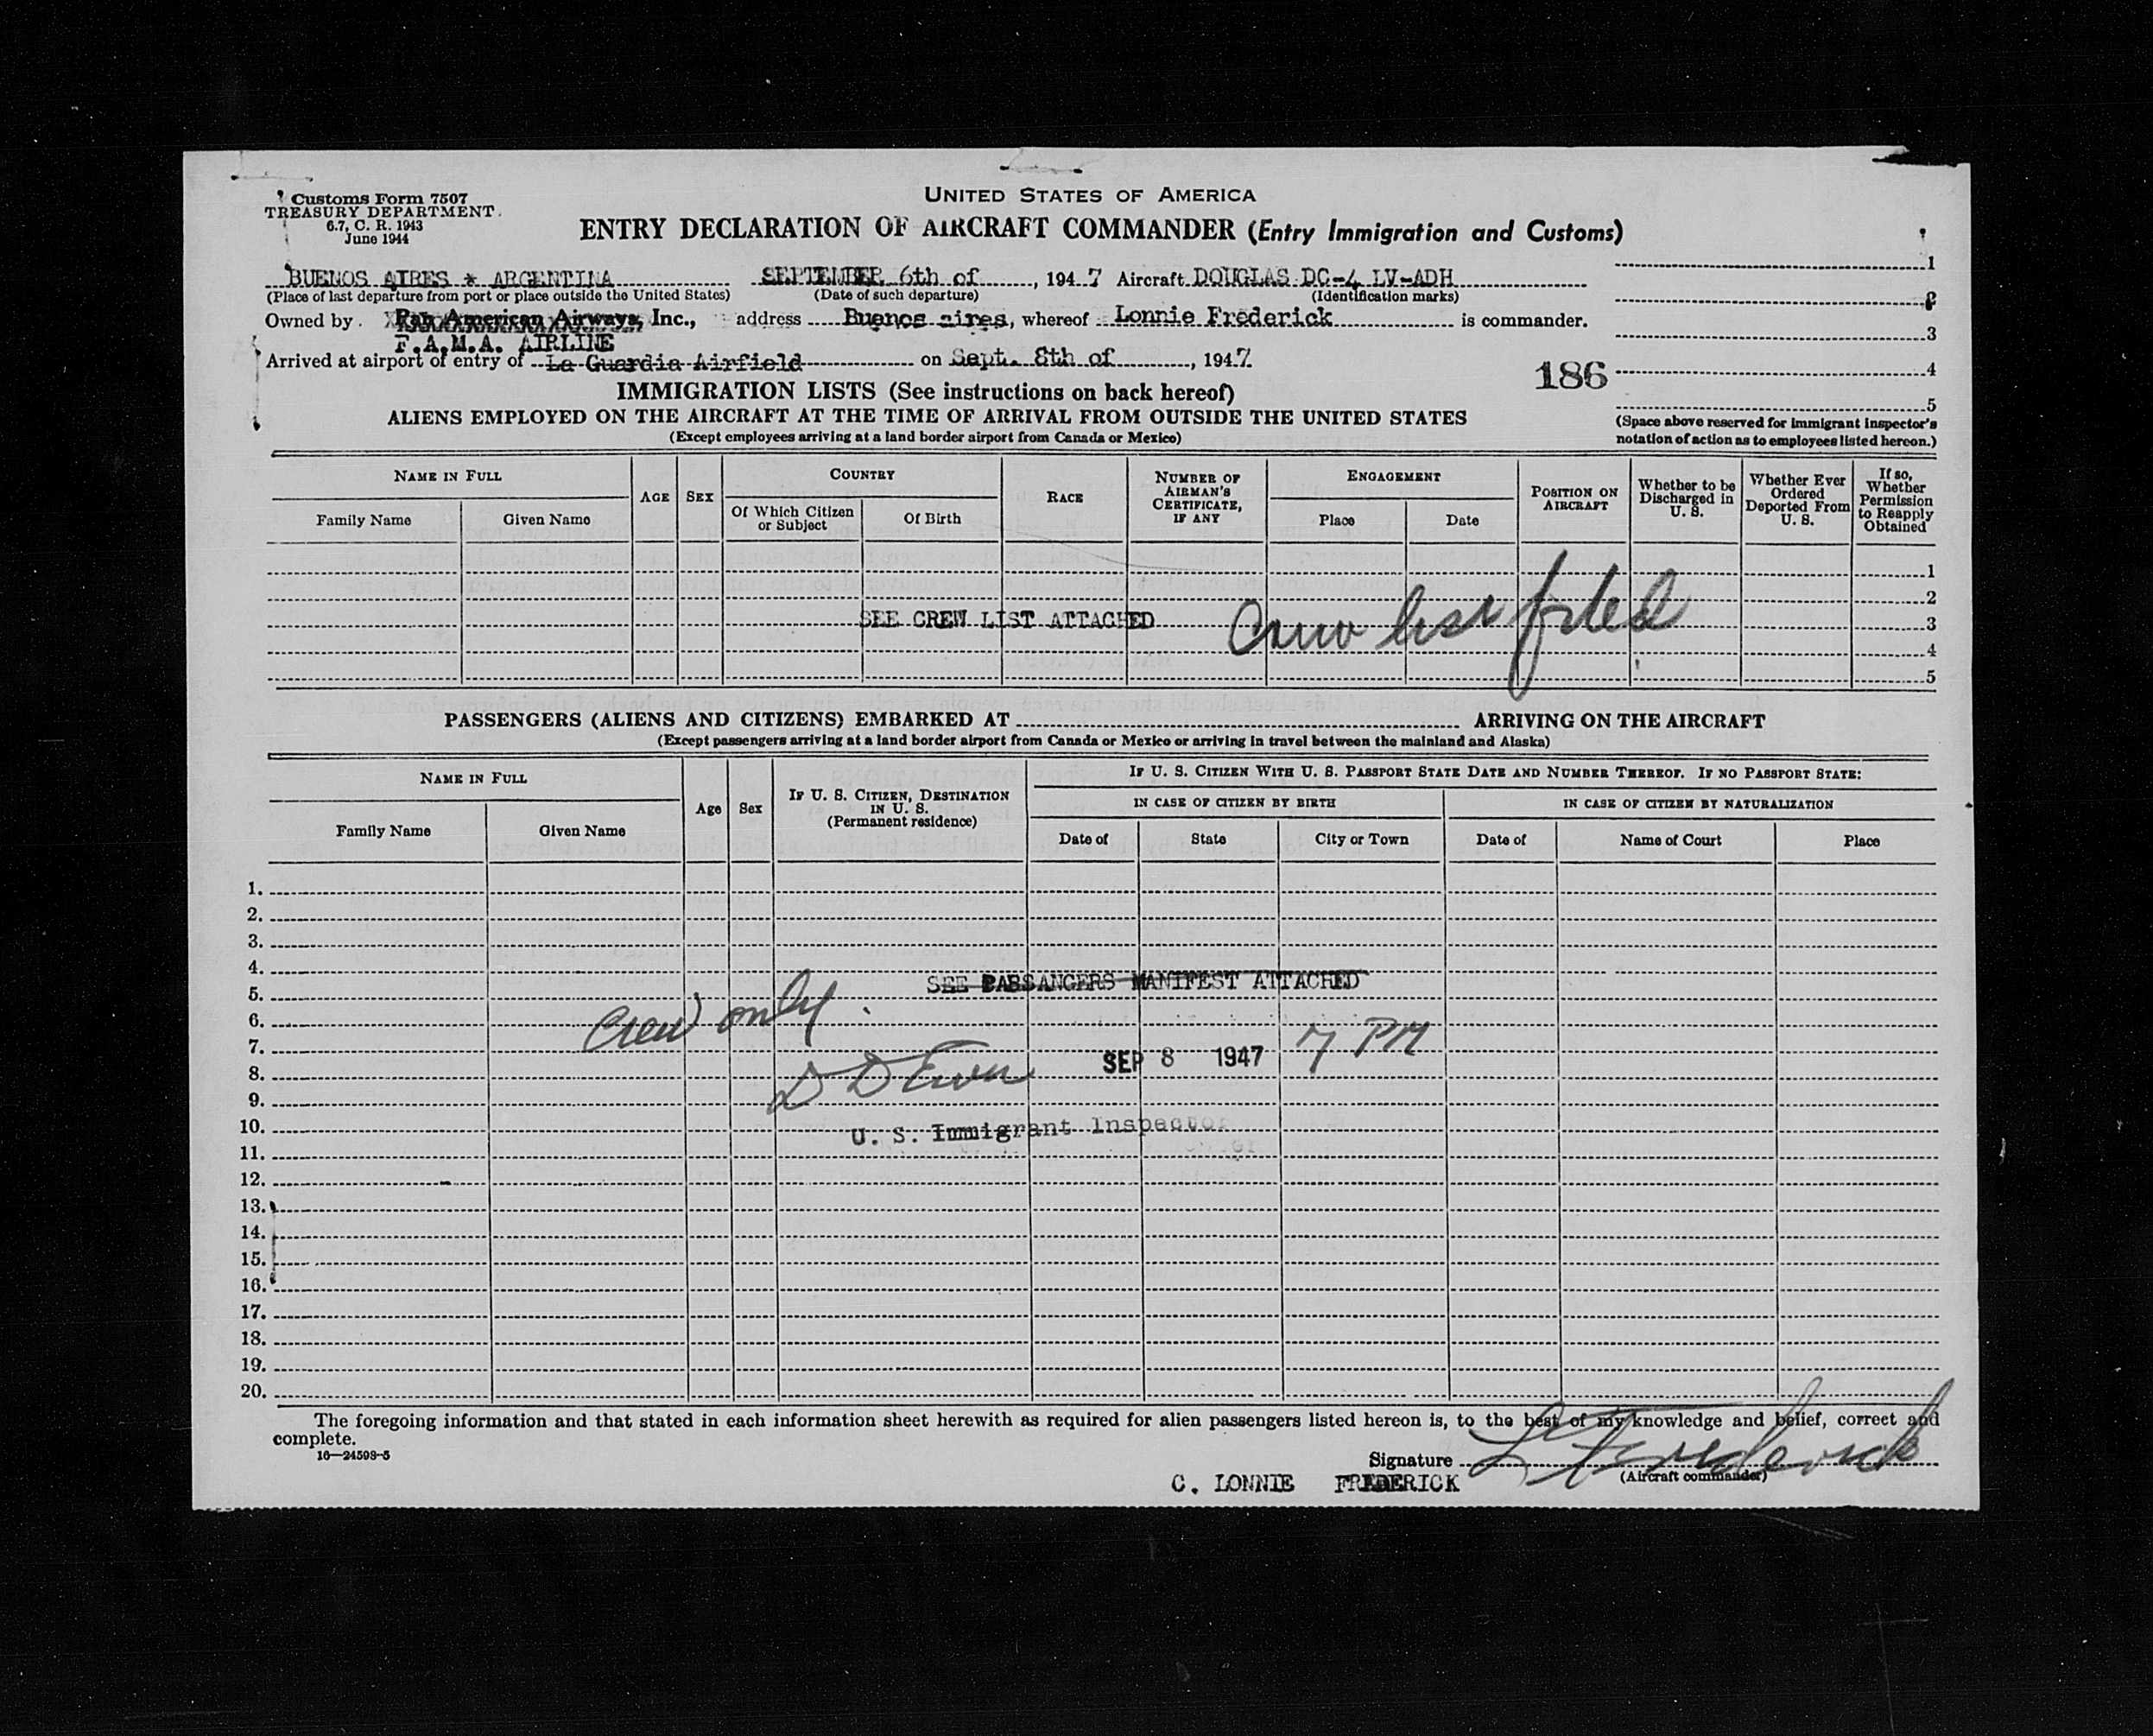 Customs Form 7507
TREASURY DEPARTMENT
6.7, C. R. 1943
June 1944
UNITED STATES OF AMERICA
ENTRY DECLARATION OF AIRCRAFT COMMANDER (Entry Immigration and Customs)
BUENOS AIRES * ARGENTINA SEPTEMBER 6th of, 1947 Aircraft DOUGLAS DC-4 LV-ADH
(Place of last departure from port or place outside the United States) (Date of such departure) (Identification marks)
Owned by Pan American Airways, Inc., address Buenos aires, whereof Lonnie Frederick is commander.
F.A.M.A. AIRLINE
Arrived at airport of entry of La Guardia Airfield on Sept. 8th of, 1947
1
2
3
4
5
186
(Space above reserved for immigrant inspector's
notation of action as to employees listed hereon.)
IMMIGRATION LISTS (See instructions on back hereof)
ALIENS EMPLOYED ON THE AIRCRAFT AT THE TIME OF ARRIVAL FROM OUTSIDE THE UNITED STATES
(Except employees arriving at a land border airport from Canada or Mexico)
NAME IN FULL
Family Name
Given Name
AGE
SEX
COUNTRY
Of Which Citizen
or Subject
Of Birth
RACE
NUMBER OF
AIRMAN'S
CERTIFICATE,
IF ANY
ENGAGEMENT
Place
Date
POSITION ON
AIRCRAFT
Whether to be
Discharged in
U. S.
Whether Ever
Ordered
Deported From
U. S.
If so,
Whether
Permission
to Reapply
Obtained
1
2
SEE CREW LIST ATTACHED Crew list filed 3
4
5
PASSENGERS (ALIENS AND CITIZENS) EMBARKED AT ARRIVING ON THE AIRCRAFT
(Except passengers arriving at a land border airport from Canada or Mexico or arriving in travel between the mainland and Alaska)
NAME IN FULL
Family Name
Given Name
Age
Sex
IF U. S. CITIZEN, DESTINATION
IN U. S.
(Permanent residence)
IF U. S. CITIZEN WITH U. S. PASSPORT STATE DATE AND NUMBER THEREOF. IF NO PASSPORT STATE:
IN CASE OF CITIZEN BY BIRTH
Date of
State
City or Town
IN CASE OF CITIZEN BY NATURALIZATION
Date of
Name of Court
Place
1.
2.
3.
4.
SEE PASSANGERS MANIFEST ATTACHED
5.
6. Crew only.
7. SEP 8 1947 7 PM
8. D D
9.
10. U. S. Immigrant Inspector
11.
12.
13.
14.
15.
16.
17.
18.
19.
20.
The foregoing information and that stated in each information sheet herewith as required for alien passengers listed hereon is, to the best of my knowledge and belief, correct and
complete.
16—24598-5
Signature L Frederick
(Aircraft commander)
C. LONNIE FREDERICK